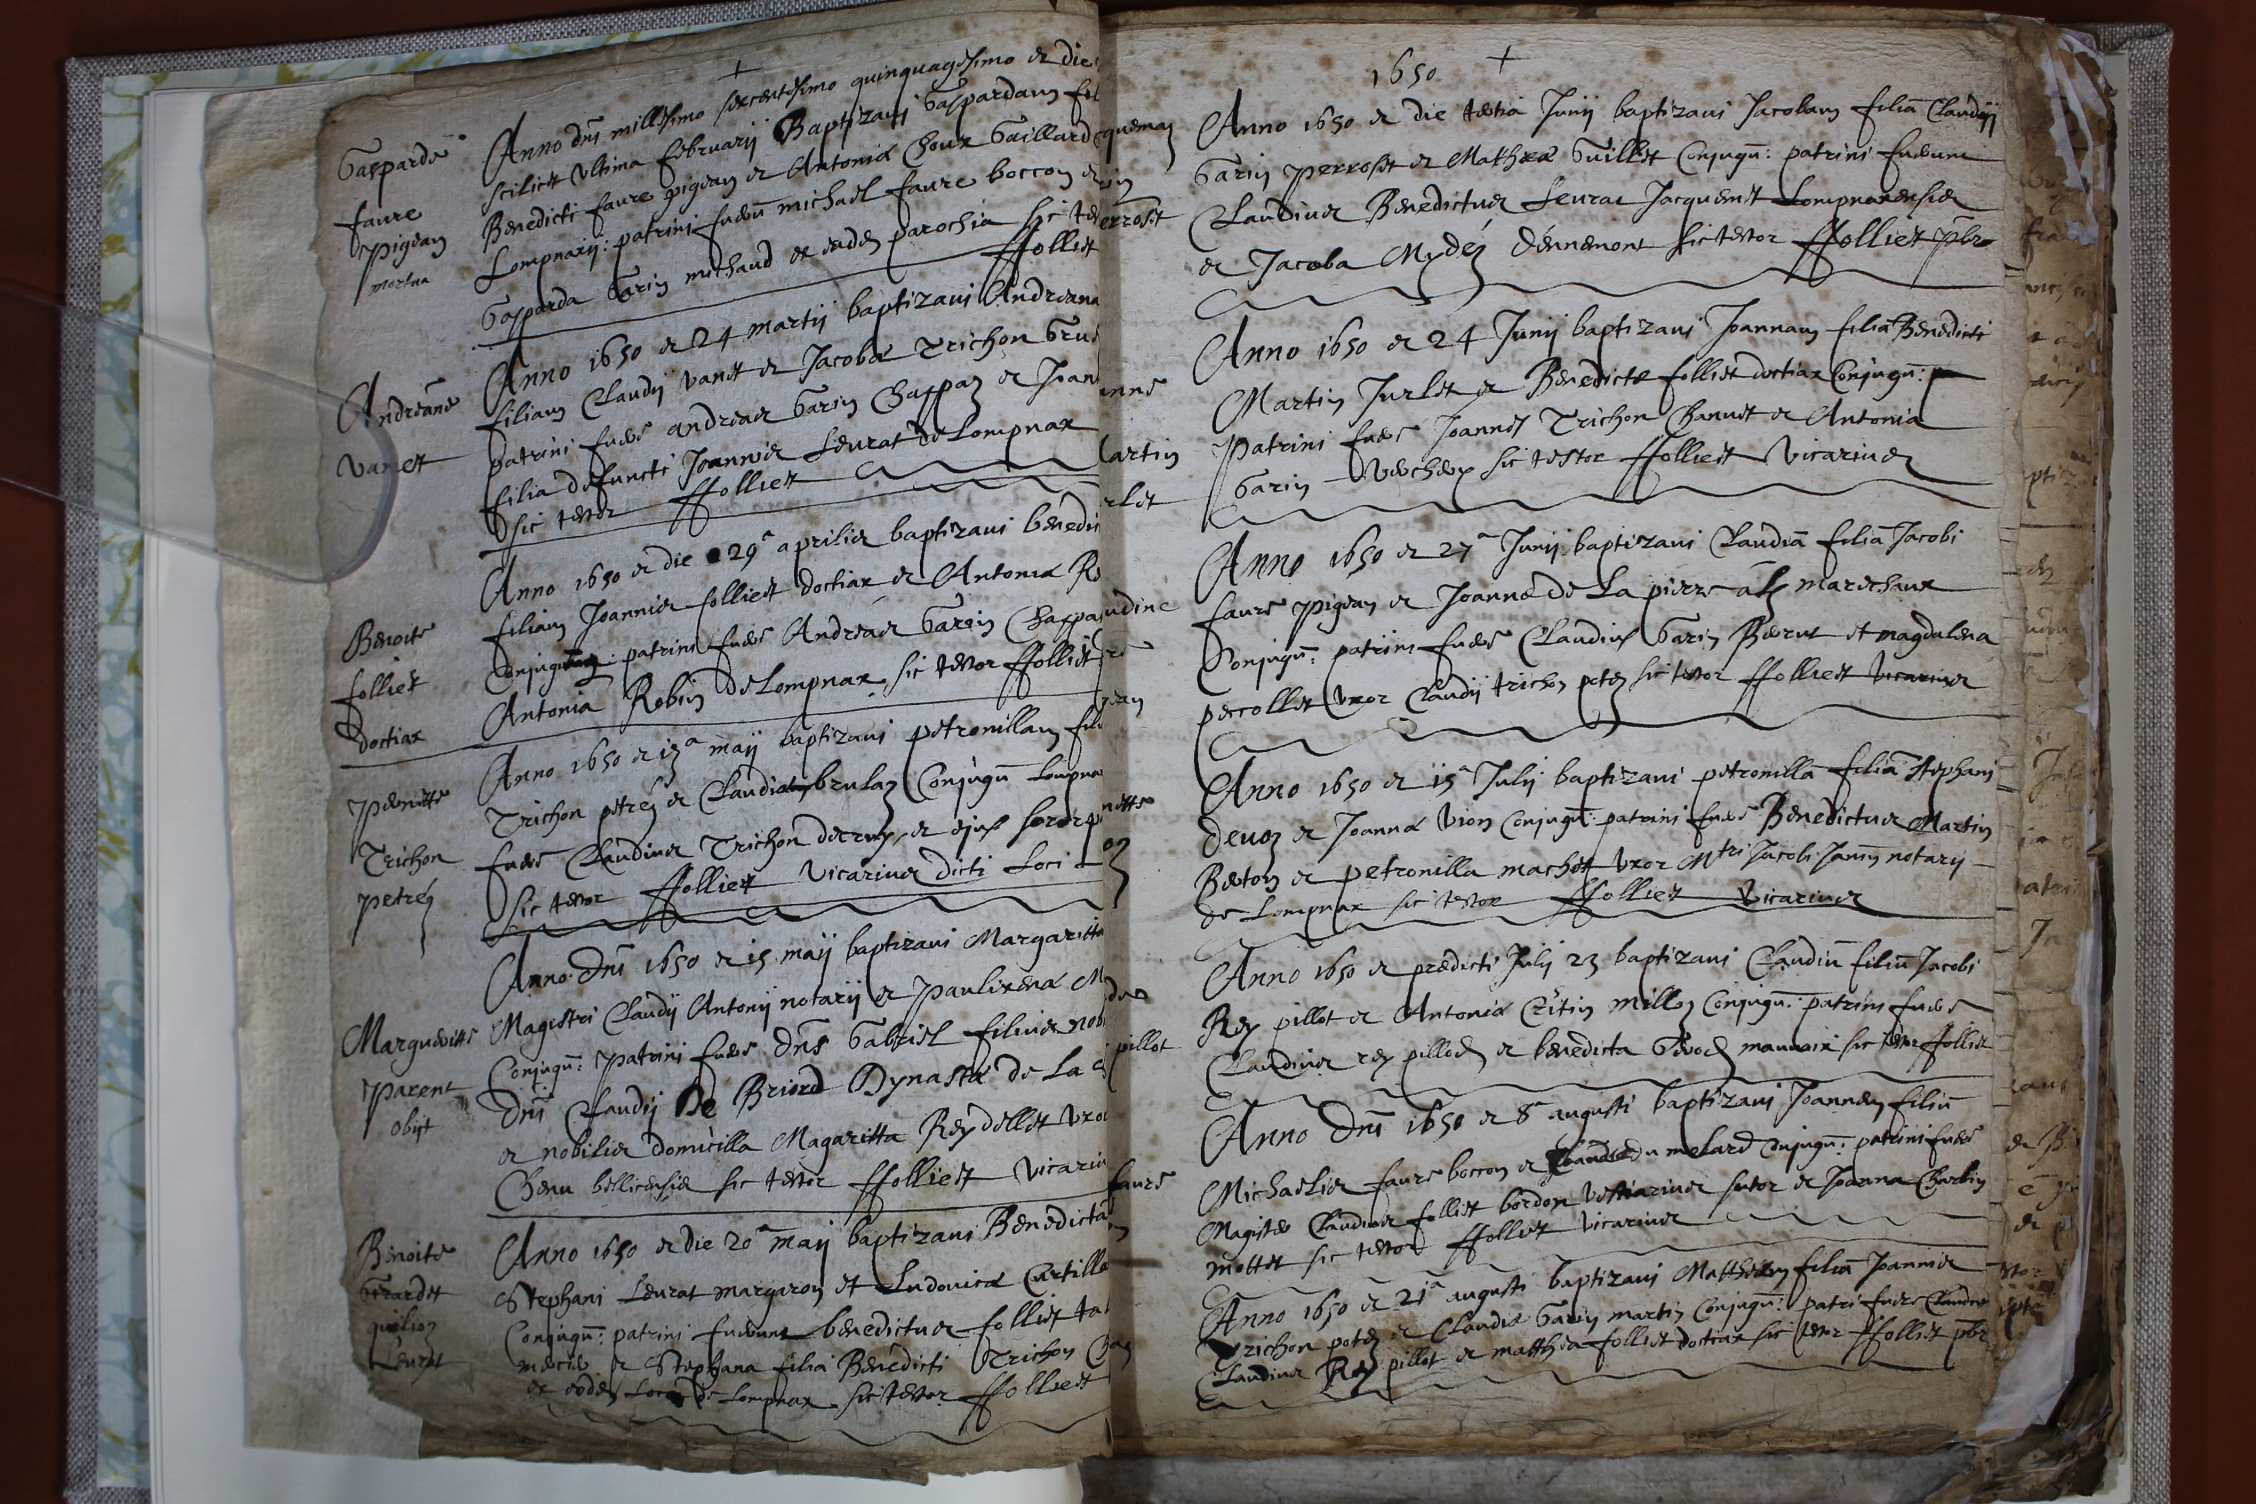 Gasparde
faure
pigeam
mortua
Anno dni millesimo sexcentesimo quinquagesimo et die
scilicet ultima februarij Baptizavi Gaspardam fil
Benedicti faure pigeam et Antoniæ Choux Gaillard
Lompnarij: patrini fueru michael faure boccon et
Gasparda Garin michaud ex eade parochia sic te
ffolliet
Andreane
vanet
Anno 1650 et 24 martij baptizavi Andreana
filiam Claudij vanet et Jacobæ Trichon Grus
patrini fuere andreas Garin Chappaz et Joan
filia defuncti Joannis Leurat de Lompnax
sic testor ffolliet
Benoite
folliet
doctiax
Anno 1650 et die 29a aprilis baptizavi benedi
filiam Joannis folliet doctiax et Antoniæ Ro
Conjugum: patrini fuere Andreas Garin Chappa
Antonia Robin de Lompnax sic testor ffolliet
Pernette
Trichon
petrez
Anno 1650 et 13a maij baptizavi petronillam fili
Trichon petrez et Claudiæ brulaz Conjugum Lompna
fuere Claudius Trichon derruz et ejus soror p
sic testor ffolliet Vicarius dicti Loci
Margueritte
Parent
obijt
Anno dni 1650 et 15 maij baptizavi Margaritta
Magistri Claudij Antonij notarij et Paulixenæ M
Conjugum: Patrini fuere dns Gabriel filius nobi
dni Claudij De Briord Dynastæ de La
et nobilis domicilla Magaritta Reydellet uxor
Chenu bellicensis sic testor ffolliet vicariu
Benoite
Girardet
Leurat
Anno 1650 et die 20a maij baptizavi Benedicta
Stephani Leurat margaron et Ludovicæ Cartilla
Conjugum: patrini fuerunt benedictus folliet ta
mercie et Stephana filia Benedicti Trichon Cha
ex eode Loco de Lompnax sic testor ffolliet
1650
Anno 1650 et die tertia Junij baptizavi Jacobam filia Claudij
Garin perroset et Mathææ Guillet Conjugum: patrini fuerunt
Claudius Benedictus Leurat Jacquemet Lompnaxensis
et Jacoba Mydez d'ennemont sic testor ffolliet pbr
Anno 1650 et 24 Junij baptizavi Joannam filia Benedicti
Martin Jurlet et Benedictæ folliet doctiax Conjugum:
Patrini fuere Joannes Trichon Chanuet et Antonia
Garin Vercherx sic testor ffolliet Vicarius
Anno 1650 et 27a Junij baptizavi Claudia filia Jacobi
faure pigeam et Joannæ de La pierre als mareschaux
Conjugum: patrini fuere Claudius Garin Berrut et magdalena
perrollet uxor Claudij trichon potez sic testor ffolliet vicarius
Anno 1650 et 15a Julij baptizavi petronilla filia Stephani
devoz et Joannæ Vion Conjugum: patrini fuere Benedictus Martin
Berton et petronilla machet uxor Mtri Jacobi Janin notarij
de Lompnax sic testor ffolliet Vicarius
Anno 1650 et prædicti Julij 23 baptizavi Claudiu filiu Jacobi
Rey pillot et Antoniæ Critin milloz Conjugum: patrini fuere
Claudius rey pillod et benedicta mauvaix sic testor ffolliet
Anno dni 1650 et 8a augusti baptizavi Joannem filiu
Michaelis faure boccon et Claudæ du melard Conjugum: patrini fuere
Magister Claudius folliet bordon vestiarius sutor et Joanna Charbin
mottet sic testor ffolliet vicarius
Anno 1650 et 21a augusti baptizavi Mattheam filia Joannis
Trichon potez et Claudiæ Garin martin Conjugum: patri fuere Claudius
Claudius Rey pillot et matthea folliet doctiax sic testor ffolliet pbr